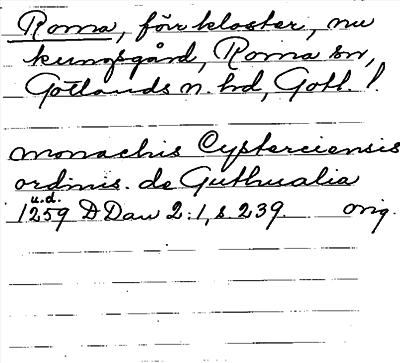 Roma, förr kloster, nu
kungsgård, Roma sn,
Gotlands n. hd, Gotl. l.
monachis Cysterciensis
ordinis. de Guthualia
u.d.
1259 DDan 2:1, s. 239. orig.